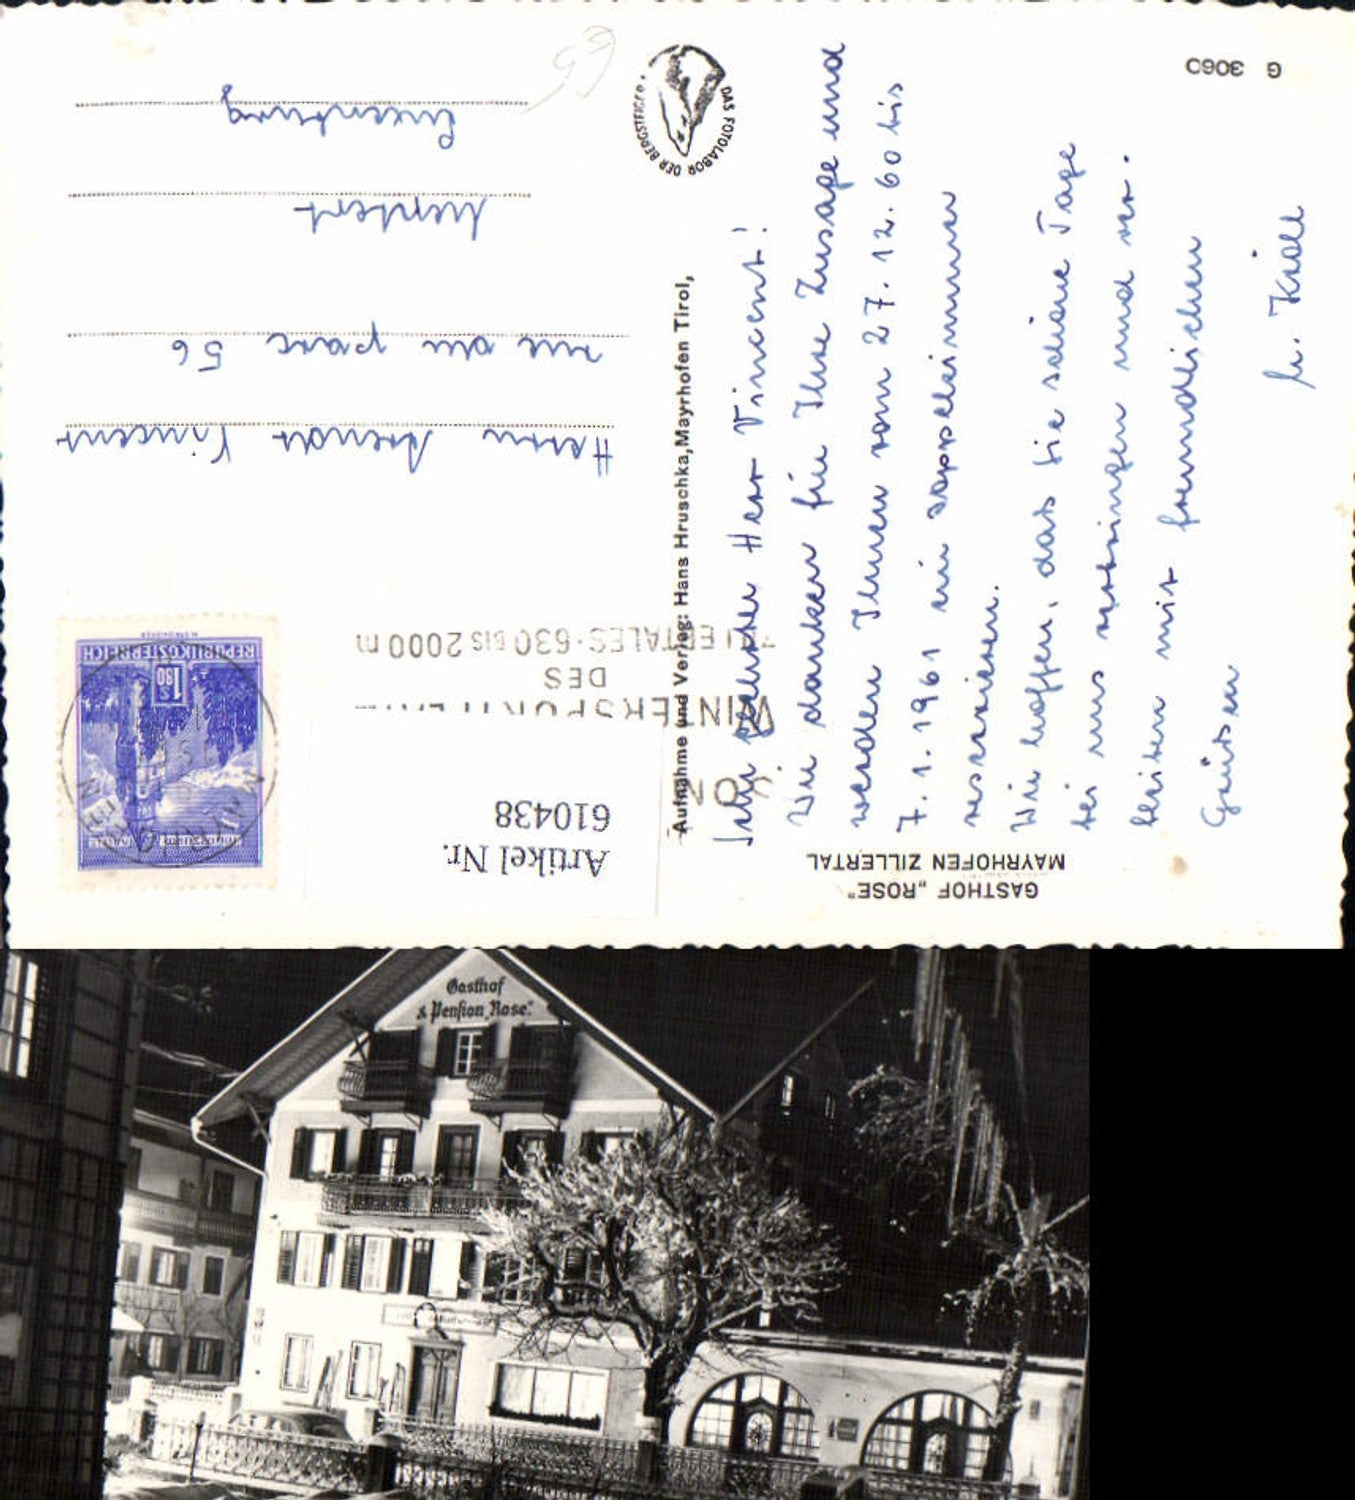 GASTHOF „ROSE"
MAYRHOFEN ZILLERTAL
Sehr geehrter Herr Vincent!
Wir danken für Ihre Zusage und
werden Ihnen vom 27.12.60 bis
7.1.1961 ein Doppelzimmer
reservieren.
Wir hoffen, daß Sie schöne Tage
bei uns verbringen und ver-
bleiben mit freundlichen
Grüßen
G 3060
Aufnahme und Verlag: Hans Hruschka, Mayrhofen Tirol,
DAS FOTOLABOR DER BERGSTEIGER
Artikel Nr.
610438
WINTERSPORT
DES
ZILLERTALES·630 BIS 2000 m
REPUBLIK ÖSTERREICH
S
1.80
Herrn Vincent
rue du parc 56
Luxemburg
Gasthof
& Pension „Rose"